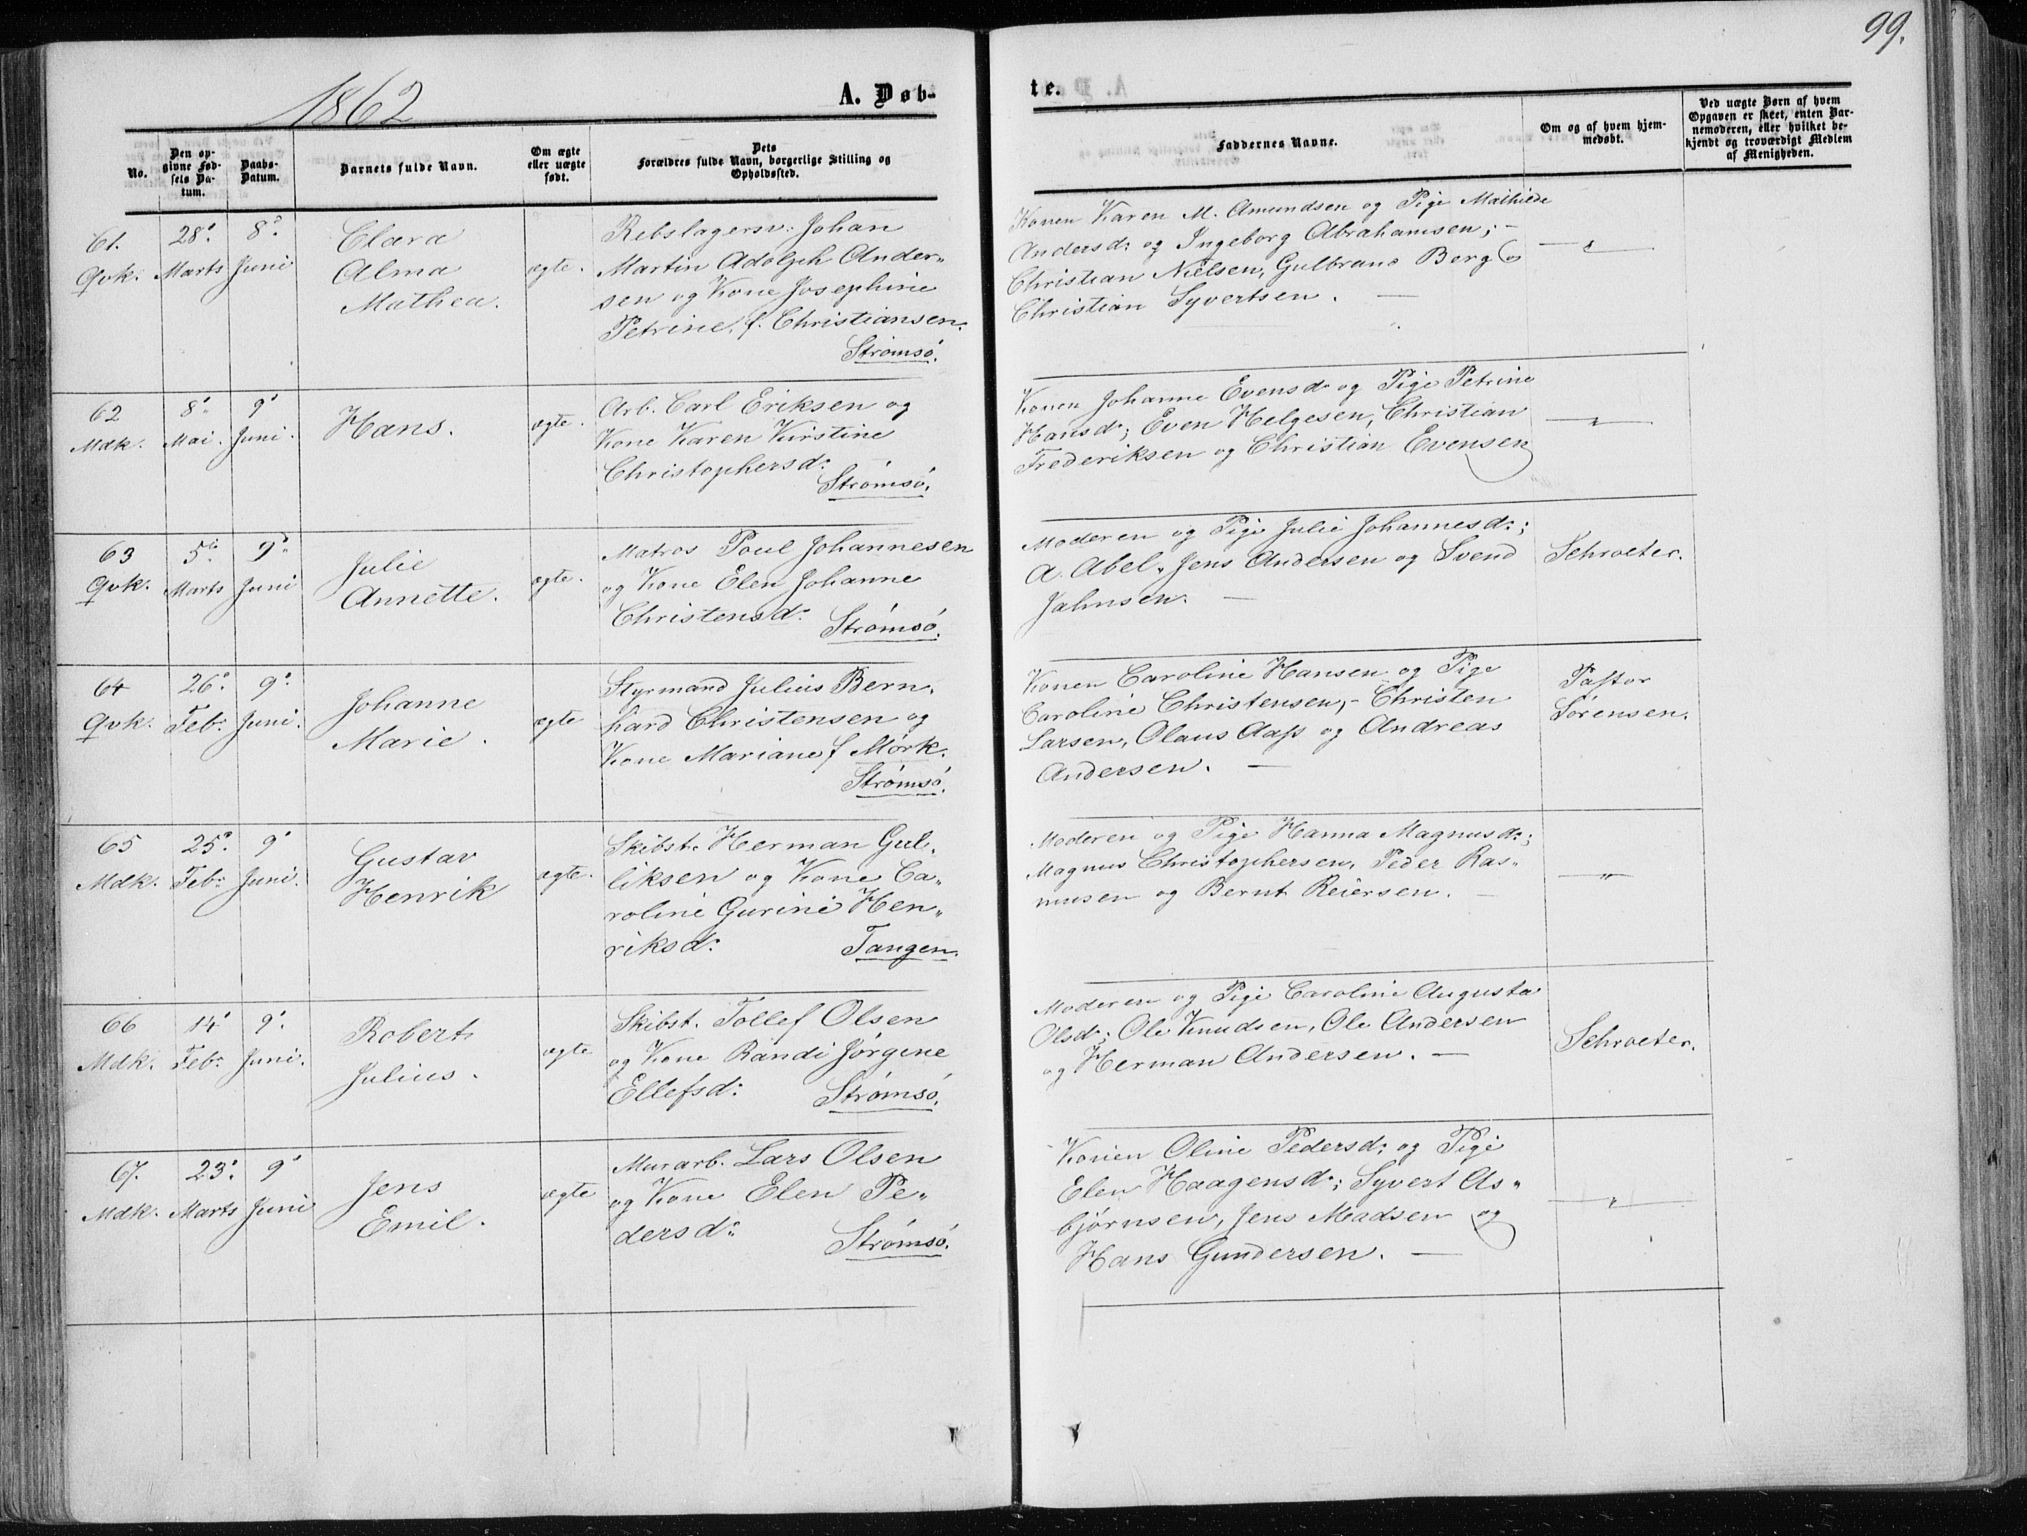 99.
1862
A. Døb-
te.
No.
Den op-
givne Fød-
sels Da-
tum.
Daabs-
Datum.
Barnets fulde Navn.
Om ægte
eller uægte
født.
Dets
Forældres fulde Navn, borgerlige Stilling og
Opholdssted.
Faddernes Navne.
Om og af hvem hjem-
medøbt.
Ved uægte Børn af hvem
Opgaven er skeet, enten Bar-
nemoderen, eller hvilket be-
kjendt og troværdigt Medlem
af Menigheden.
61.
Qvk.
28'
Marts
8'
Juni
Clara
Alma
Mathea.
ægte.
Rebslagersv: Johan
Martin Adolph Ander-
sen og Kone Josephine
Petrine, f. Christiansen.
Strømsø.
Konen Karen M. Amundsen og Pige Mathilde
Andersd: og Ingeborg Abrahamsen; -
Christian Nielsen, Gulbrand Berg &
Christian Syvertsen. —
— " —
62
Mdk.
8'
Mai.
9'
Juni.
Hans.
ægte.
Arb. Carl Eriksen og
Kone Karen Kirstine
Christophersd:
Strømsø.
Konen Johanne Evensd: og Pige Petrine
Hansd:; Even Helgesen, Christian
Frederiksen og Christian Evensen
— " —
63
Qvk.
5'
Marts
9'
Juni
Julie
Annette.
ægte.
Matros Poul Johannesen
og Kone Elen Johanne
Christensd:
Strømsø.
Moderen og Pige Julie Johannesd:;
A. Abel, Jens Andersen og Svend
Jahnsen. —
Schroeter.
64
Qvk.
26'
Feb:
9'
Juni.
Johanne
Marie.
ægte
Styrmand Julius Bern-
hard Christensen og
Kone Mariane f Mørk.
Strømsø.
Konen Caroline Hansen og Pige
Caroline Christensen; - Christen
Larsen, Olaus Aass og Andreas
Andersen. —
Pastor
Sørensen.
65
Mdk.
25'
Feb:
9'
Juni.
Gustav
Henrik
ægte.
Skibst. Herman Gul-
liksen og Kone Ca-
roline Gurine Hen-
riksd:
Tangen.
Moderen og Pige Hanna Magnusd:;
Magnus Christophersen, Peder Ras-
musen og Bernt Reiersen. —
— " —
66
Mdk.
14'
Feb:
9'
Juni.
Robert
Julius.
ægte
Skibst. Tollef Olsen
og Kone Randi Jørgine
Ellefsd:
Strømsø.
Moderen og Pige Caroline Augusta
Olsd:; Ole Knudsen, Ole Andersen
og Herman Andersen. —
Schroeter.
67.
Mdk.
23'
Marts
9'
Juni
Jens
Emil.
ægte
Murarb. Lars Olsen
og Kone Elen Pe-
dersd:
Strømsø.
Konen Oline Pedersd: og Pige
Elen Haagensd:; Syvert As-
bjørnsen, Jens Madsen og
Hans Gundersen. —
— " —